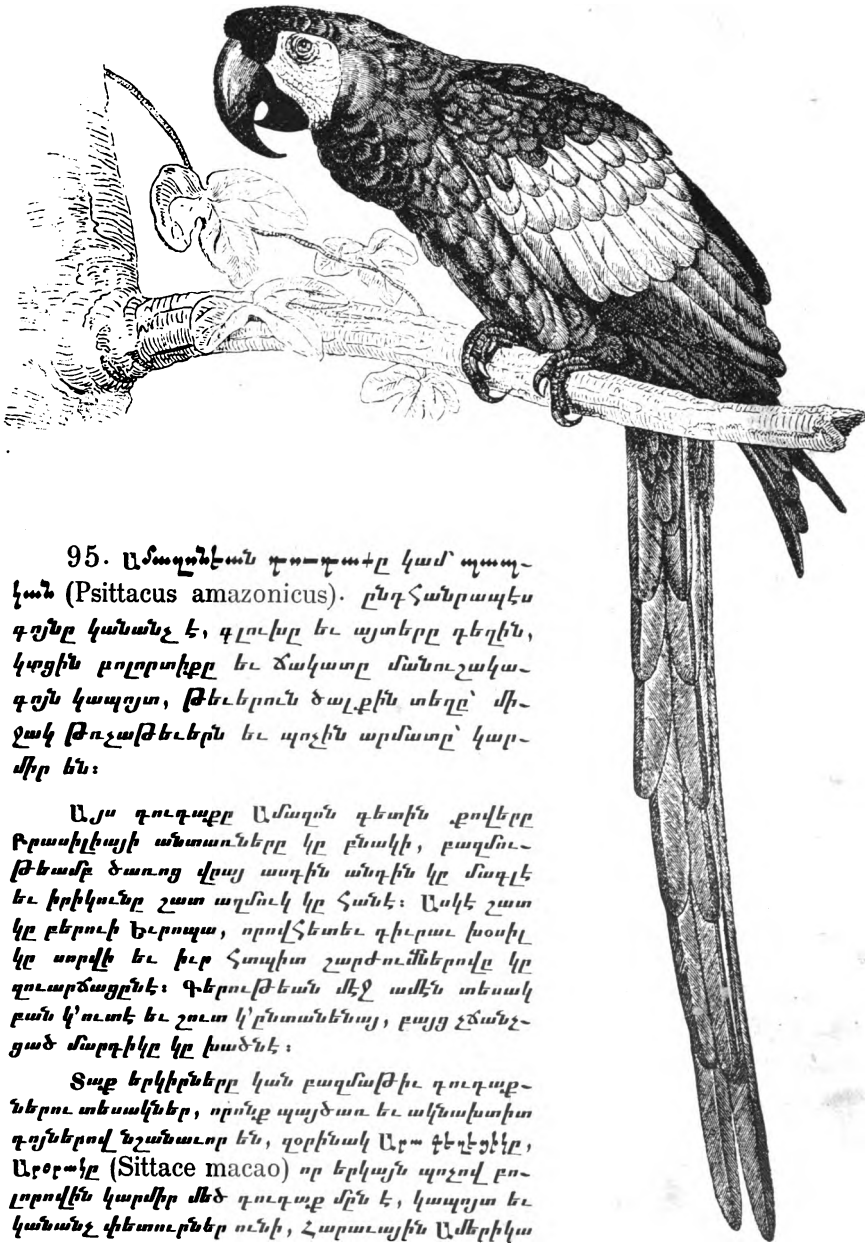 95. Ամազոնէան դուդաքը կամ պապ-
կան (Psittacus amazonicus). ընդհանրապէս
գոյնը կանանչ է, գլուխը եւ այտերը դեղին,
կտցին բոլորտիքը եւ ճակատը մանուշակա-
գոյն կապոյտ, թեւերուն ծալքին տեղը՝ մի-
ջակ թռչաթեւերն եւ պոչին արմատը՝ կար-
միր են։
Այս դուդաքը Ամազոն գետին քովերը
Բրասիլիայի անտառները կը բնակի, բազմու-
թեամբ ծառոց վրայ ասդին անդին կը մագլէ
եւ իրիկունը շատ աղմուկ կը հանէ։ Ասկէ շատ
կը բերուի Եւրոպա, որովհետեւ դիւրաւ խօսիլ
կը սորվի եւ իւր հտպիտ շարժումներովը կը
զուարճացընէ։ Գերութեան մէջ ամէն տեսակ
բան կ՚ուտէ եւ շուտ կ՚ընտանենայ, բայց չճանչ-
ցած մարդիկը կը խածնէ։
Տաք երկիրները կան բազմաթիւ դուդաք-
ներու տեսակներ, որոնք պայծառ եւ ակնախտիտ
գոյներով նշանաւոր են, զօրինակ Արա գեղեցիկը,
Արօրակը (Sittace macao) որ երկայն պոչով բո-
լորովին կարմիր մեծ դուդաք մըն է, կապոյտ եւ
կանանչ փետուրներ ունի, Հարաւային Ամերիկա